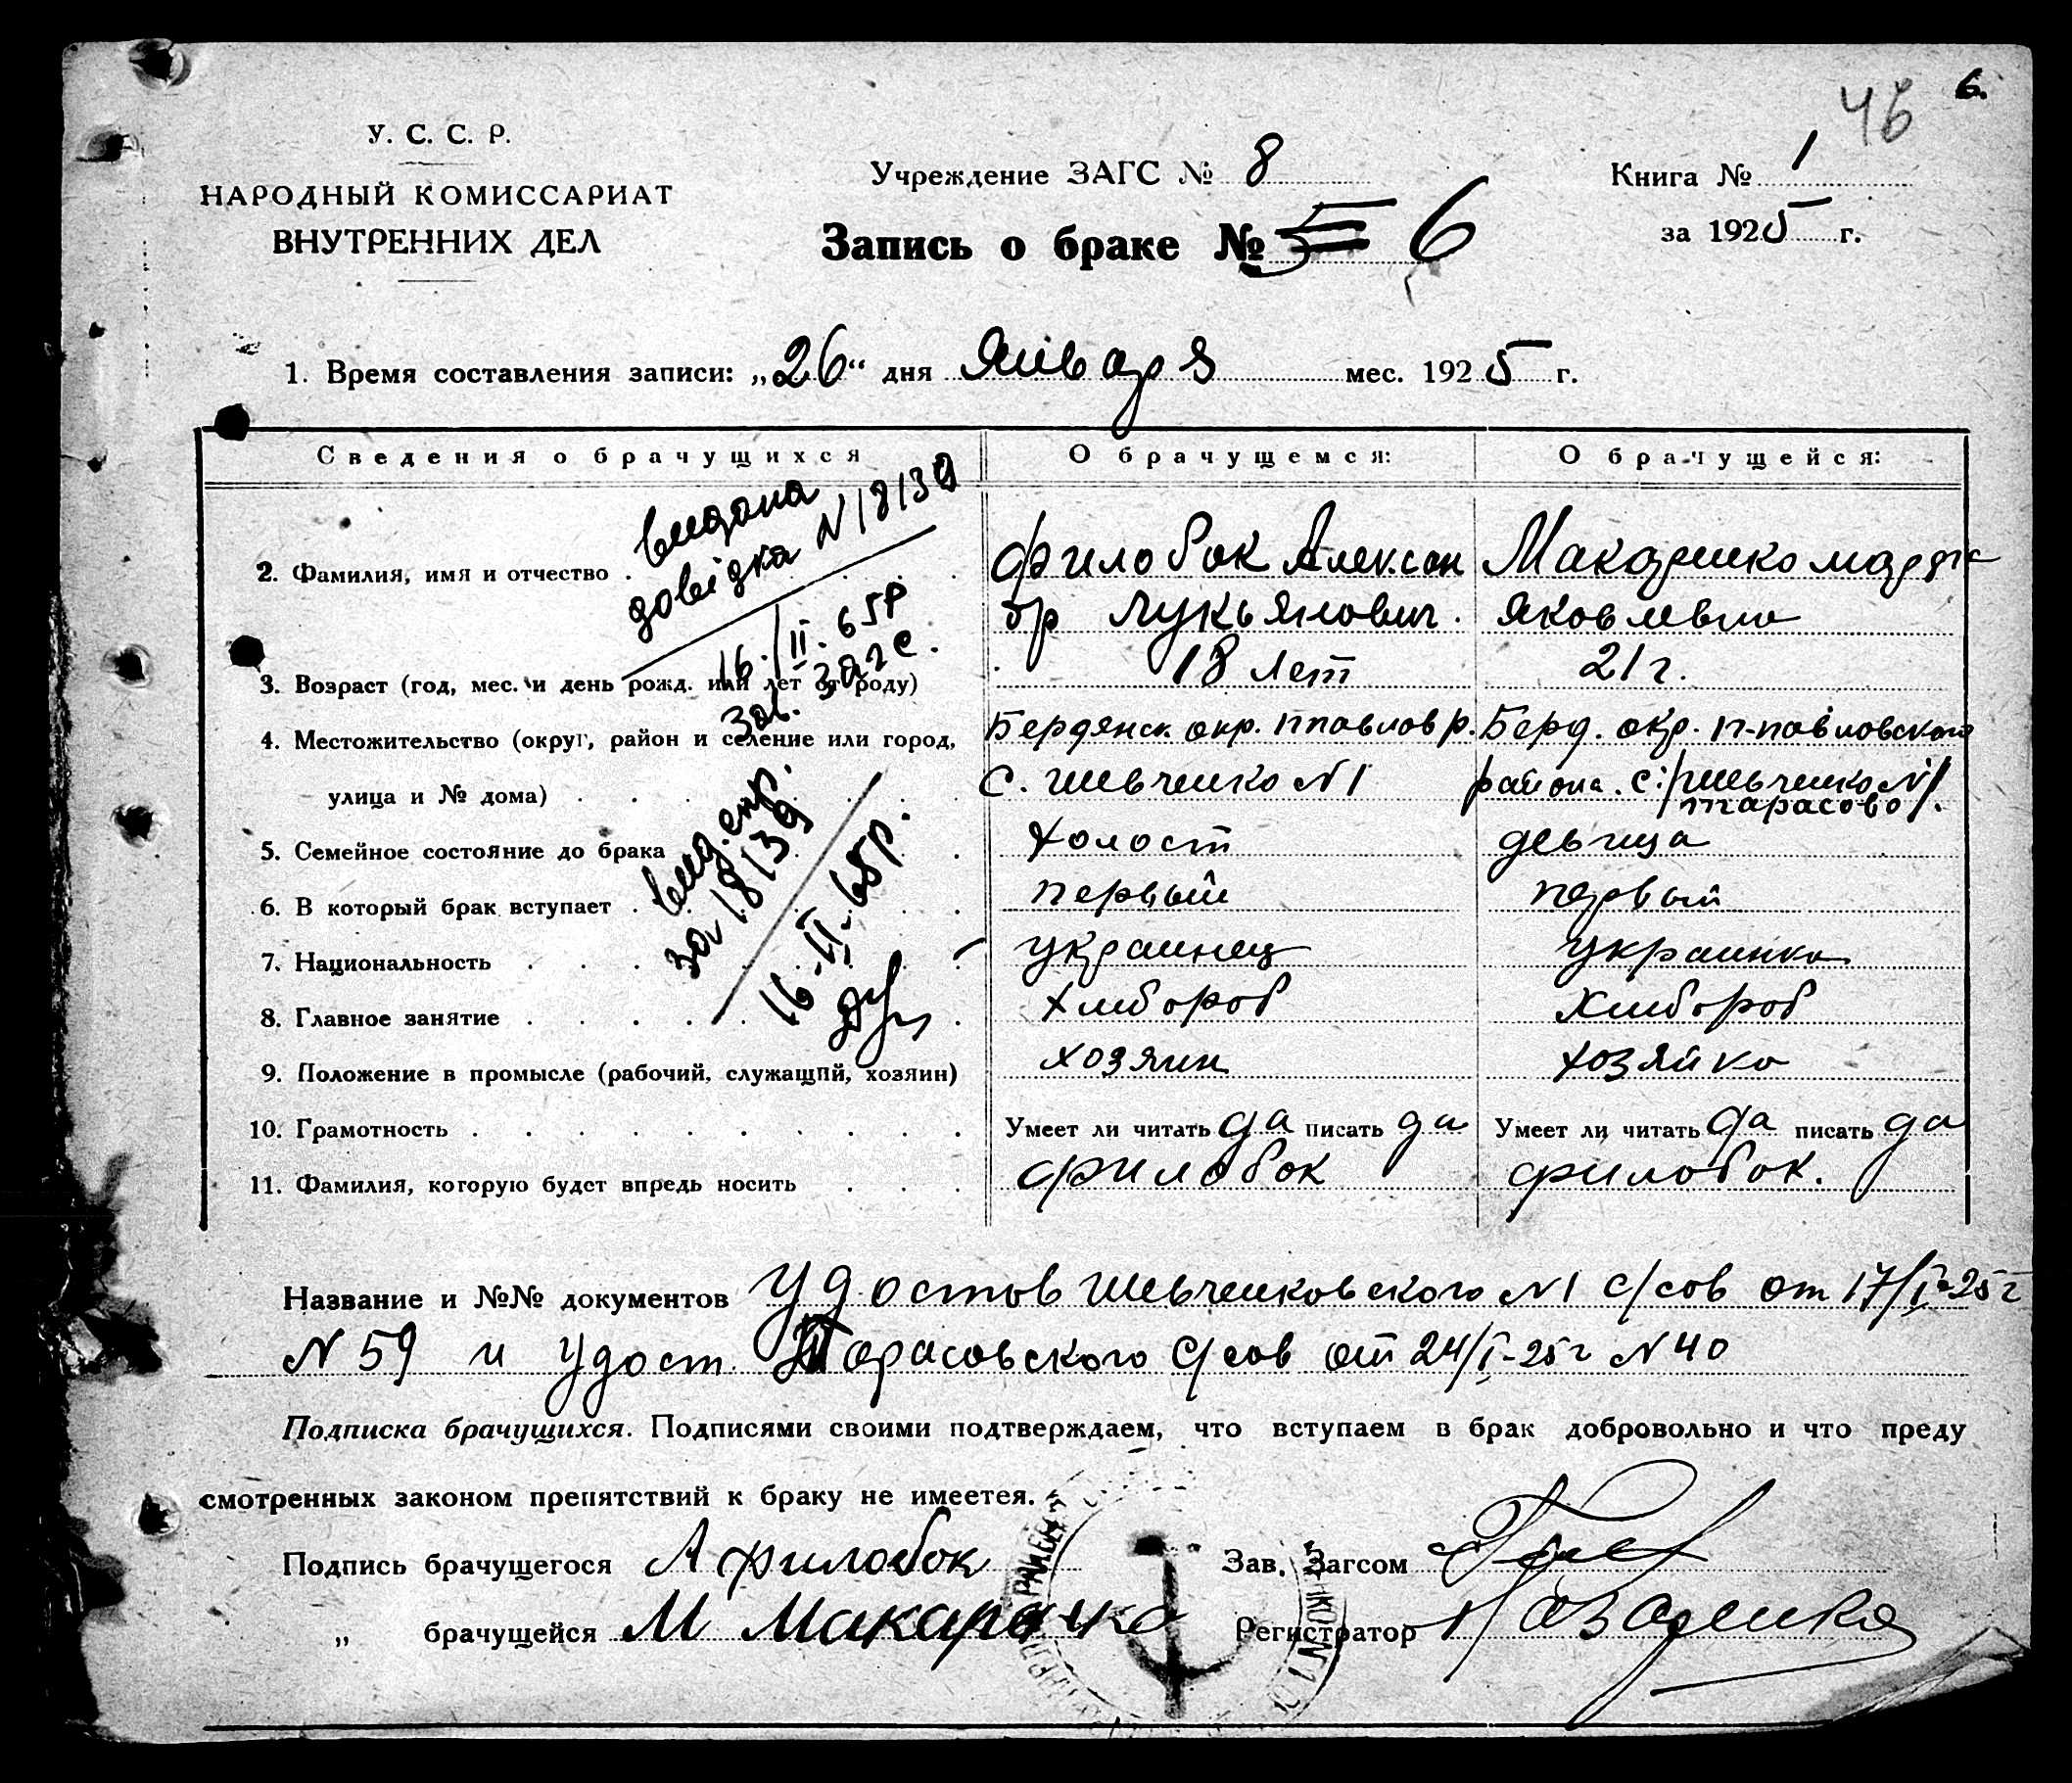 6.
46
У. С. С. Р.
НАРОДНЫЙ КОМИССАРИАТ
ВНУТРЕННИХ ДЕЛ
Учреждение ЗАГС № 8
Книга № 1
Запись о браке № 5 6
за 1925 г.
1. Время составления записи: „26“ дня Января мес. 1925 г.
Сведения о брачущихся О брачущемся: О брачущейся:
видана
довідка N 18139
16./II. 65р
Зав. Загс.
2. Фамилия, имя и отчество Филобок Алексан Макаренко марфа
др Лукьянович. Яковлевна
3. Возраст (год, мес. и день рожд. или лет от роду) 18 лет 21 г.
4. Местожительство (округ, район и селение или город, Бердянск. окр. ппавлов р. Берд. окр. п-павловского
улица и № дома) С. Шевченко N 1 района. с. Шевченко N 1
Тарасово
5. Семейное состояние до брака холост девица
6. В который брак вступает первый первый
7. Национальность украинец украинка
8. Главное занятие хлибороб хлибороб
9. Положение в промысле (рабочий, служащий, хозяин) хозяин хозяйка
10. Грамотность Умеет ли читать да писать да Умеет ли читать да писать да
11. Фамилия, которую будет впредь носить Филобок Филобок.
за 18139
16.-II-65р.
Название и №№ документов Удостов Шевченковского N 1 с/сов от 17/I-25 г
N 59 и Удост. Тарасовского с/сов от 24/I-25 г N 40
Подписка брачущихся. Подписями своими подтверждаем, что вступаем в брак добровольно и что преду
смотренных законом препятствий к браку не имеется.
Подпись брачущегося А Филобок Зав. Загсом
„ брачущейся М Макаренко Регистратор